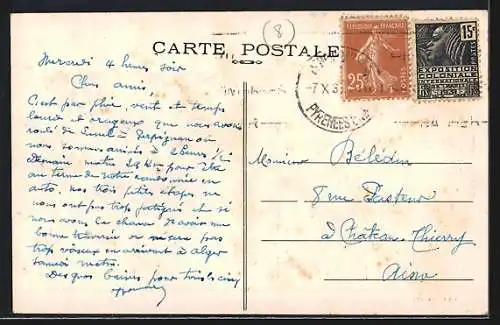 (8)
CARTE POSTALE
Mercredi 4 heures soir
Chers amis,
C'est par pluie, vent et temps
lourd et orageux que nous avons
roulé de Lunel à Perpignan où
nous sommes arrivés à 2 heures
Demain matin 29 Km pour être
au terme de notre randonnée en
auto. Nos trois petites étapes ne
nous ont pas trop fatigués et si
nous avons la chance d'avoir une
bonne traversée on ne sera pas
trop vaseux en arrivant à Alger
samedi matin.
Des gros baisers pour tous les cinq
REPUBLIQUE FRANÇAISE
25c
POSTES
15c
EXPOSITION
COLONIALE
INTERNATIONALE
PARIS 1931
7 X 3
PYRENEES
Monsieur Belédin
8 rue Pasteur
à Château-Thierry
Aisne